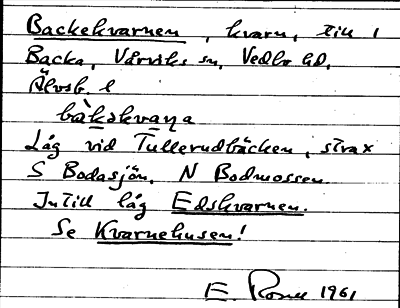 Backekvarnen, kvarn, till 1
Backa, Vårviks sn, Vedbo hd,
Älvsb. l
bàkakvaɳa
Låg vid Tullerudbäcken, strax
S Bodasjön, N Bodmossen.
Intill låg Edskvarnen.
Se Kvarnehusen!
E. 1961